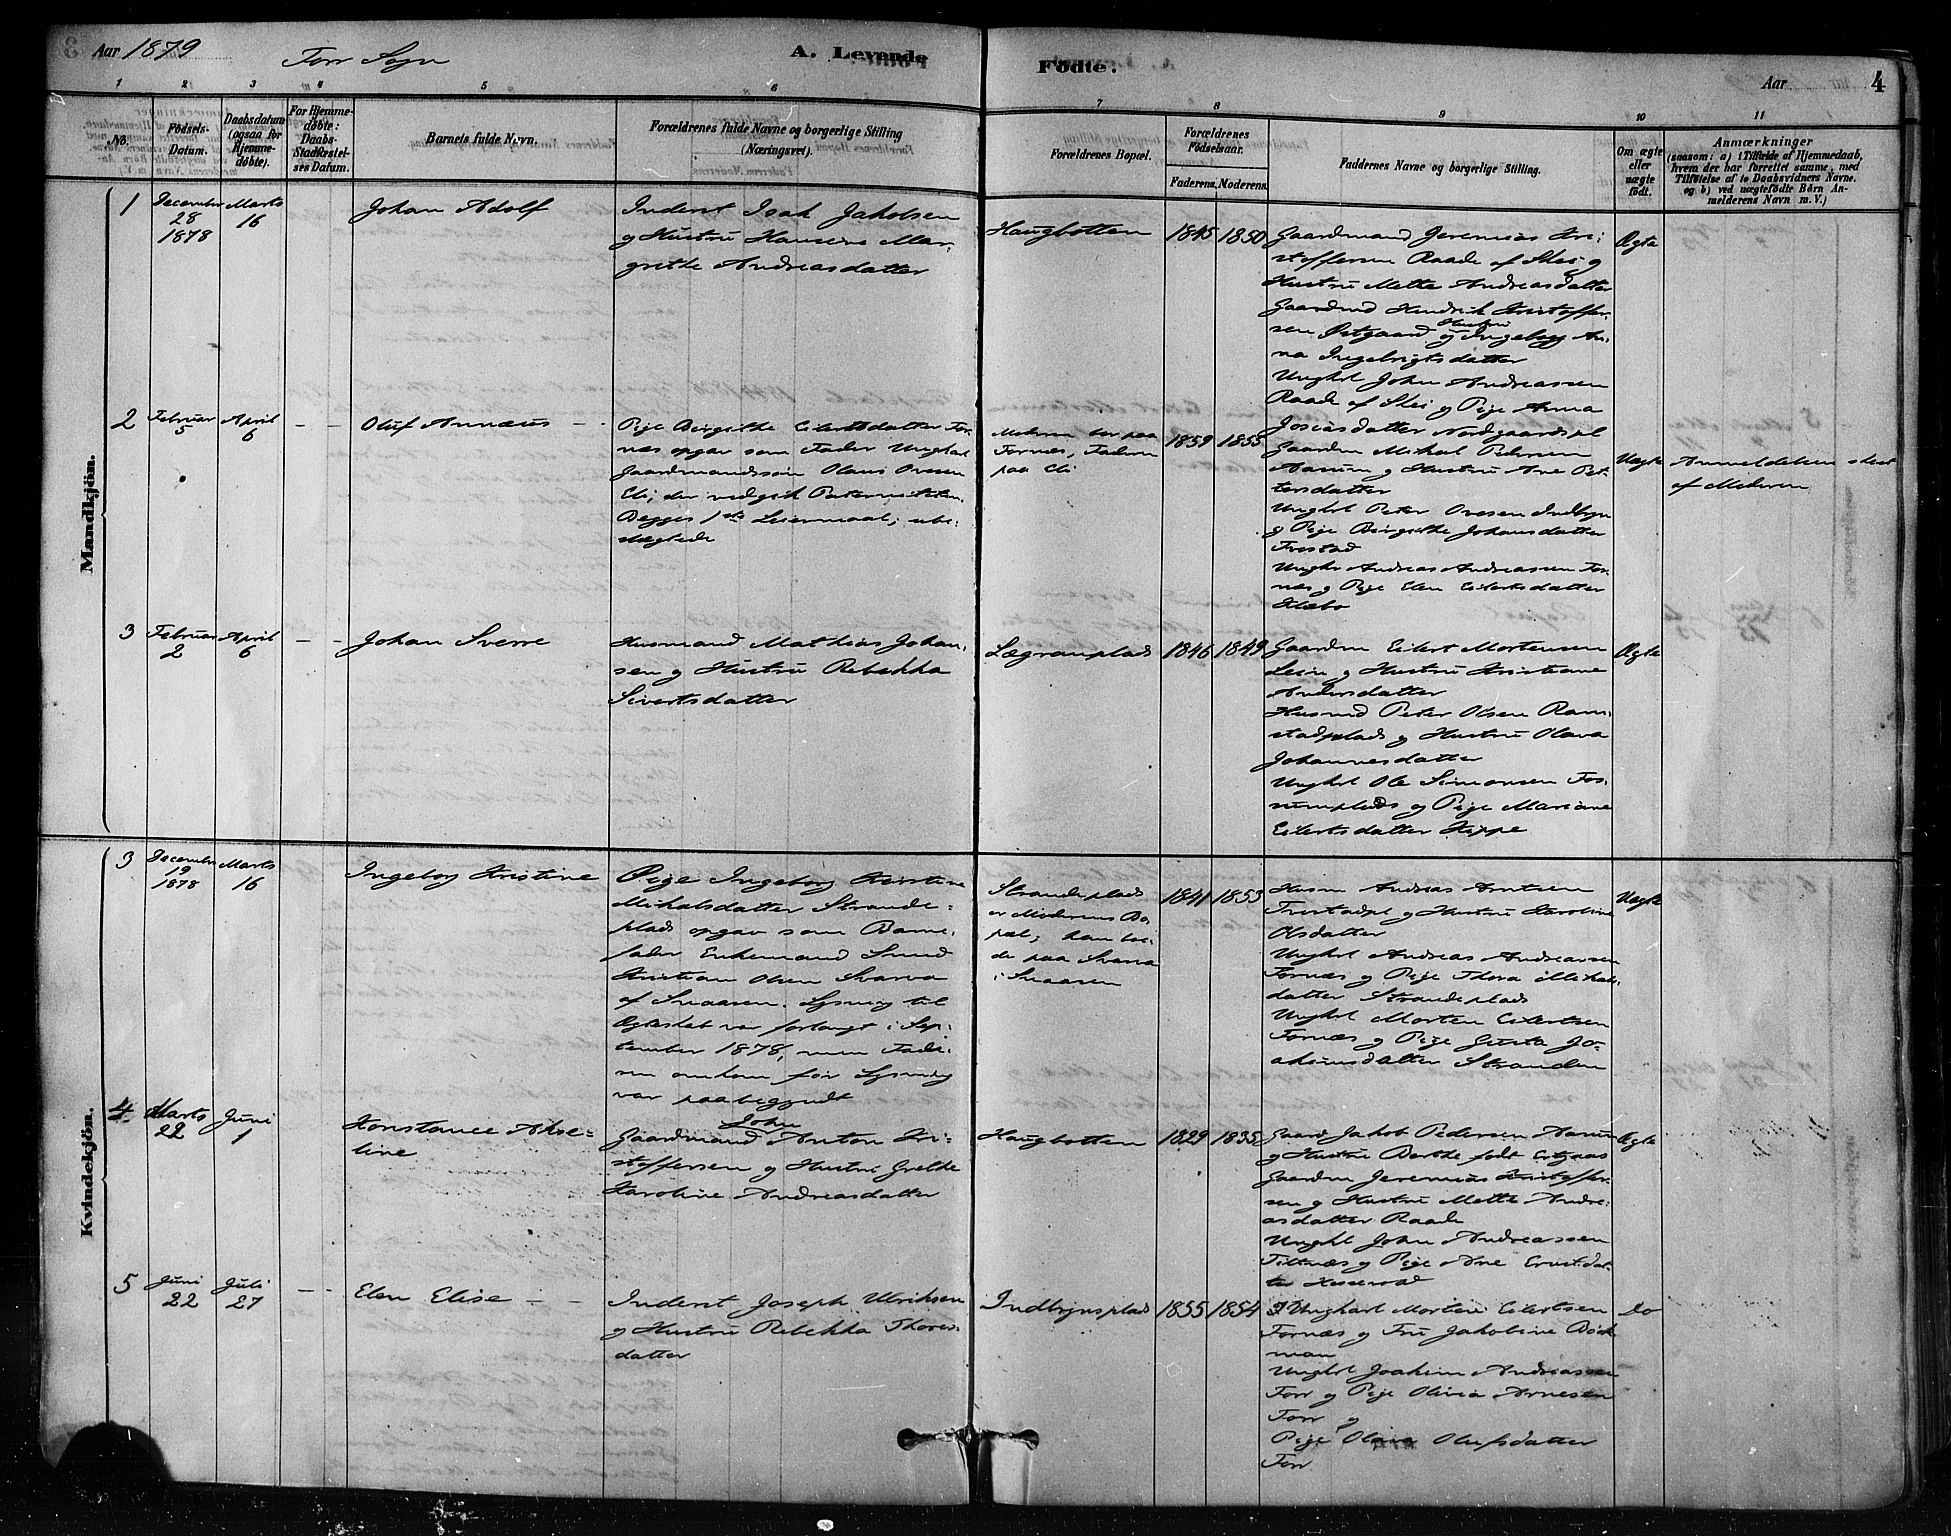 Aar 1879 Forr Sogn A. Levende Fødte. Aar 4
1 2 3 4 5 6 7 8 9 10 11
No.
Fødsels-
Datum.
Daabsdatum
(ogsaa for
Hjemme-
døbte).
For Hjemme-
døbte:
Daabs-
Stadfæstel-
ses Datum.
Barnets fulde Navn.
Forældrenes fulde Navne og borgerlige Stilling
(Næringsvei).
Forældrenes Bopæl.
Forældrenes
Fødselsaar.
Faderens. Moderens.
Faddernes Navne og borgerlige Stilling.
Om ægte
eller
uægte
født.
Anmærkninger
(saasom: a) i Tilfælde af Hjemmedaab,
hvem der har forrettet samme, med
Tilføielse af to Daabsvidners Navne.
og b) ved uægtefødte Børn An-
melderens Navn m. V.)
Mandkjön.
1
December
28
1878
Marts
16
Johan Adolf
Inderst Isak Jakobsen
og Hustru Hansine Mar-
grethe Andreasdatter
Haugbotten
1845
1850
Gaardmand Jeremias Kri-
stoffersen Raade af Skei og
Hustru Mette Andreasdatter
Gaardmd Hendrik Kristoffer-
sen Østgaard og Hustru Ingeborg An-
na Ingebrigtsdatter
Ungkl John Andreassen
Raade af Skei og Pige Anna
Josiasdatter Nordgaardspl
Ægte
2
Februar
5
April
6
Oluf Annæus
Pige Birgithe Eilertsdatter For-
næs opgav som Fader Ungkarl
Gaardmandssøn Olaus Ovesen
Eli; der vedgik Paterniteten.
Begges 1ste Leiermaal; ube-
slægtede
Moderen bor paa
Fornæs, Faderen
paa Eli
1859
1855
Gaardm Mikal Pedersen
Aasum og Hustru Ane Pet-
tersdatter
Ungkl Peter Ovesen Indbryn
og Pige Birgithe Johansdatter
Trøstad
Ungkr Andreas Andreassen For-
næs og Pige Elen Eilertsdatter
Klæbo
Uægte
Anmeldelsen skeet
af Moderen
3
Februar
2
April
6
Johan Sverre
Husmand Mathias Johan-
sen og Hustru Rebekka
Sivertsdatter
Lægranplads
1846
1849
Gaardm Eilert Mortensen
Lein og Hustru Kristiane
Andersdatter
Husmd Peter Olsen Ram-
stadplads og Hustru Olava
Johannesdatter
Ungkl Ole Simonsen Fos-
sumplads og Pige Mariane
Eilertsdatter Hippe
Ægte
Kvindekjön.
3
December
19
1878
Marts
16
Ingeborg Kristine
Pige Ingeborg Kirstine
Mikalsdatter Strande-
plads opgav som Barne-
fader Enkemand Smed
Kristian Olsen Svarva
af Snaasen. Lysning til
Ægteskab var forlangt i Sep-
tember 1878, men Fade-
ren omkom før Lysning
var paabegyndt
Strandeplads
er Moderens Bo-
pæl; han bo-
de paa Svarva
i Snaasen
1841
1853
Husm Andreas Arntsen
Trøstadpl og Hustru Karoline
Olsdatter
Ungkl Andreas Andreassen
Fornæs og Pige Thora Mikals-
datter Strandeplads
Ungkl Morten Eilertsen
Fornæs og Pige Gusta Jo-
akimsdatter Stranden
Uægte
4
Marts
22
Juni
1
Konstance Akse-
line
Gaardmand John Anton Kri-
stoffersen og Hustru Grethe
Karoline Andreasdatter
Haugbotten
1829
1835
Gaard Jakob Pedersen Aasum
og Hustru Berthe født
Gaardm Jeremias Kristoffer-
sen og Hustru Mette Andre-
asdatter Raade
Ungkl John Andreassen
og Pige Ane Ernstdat-
ter
Ægte
5
Juni
22
Juli
27
Elen Elise
Inderst Joseph Ulriksen
og Hustru Rebekka Thores-
datter
Indbrynsplads
1855
1854
Ungkarl Morten Eilertsen
Fornæs og Fru Jakobine Bøck-
man
Ungkl Joakim Andreassen
Forr og Pige Olivia Arnesen
Forr og
Pige Olava Olufsdatter
Forr
do